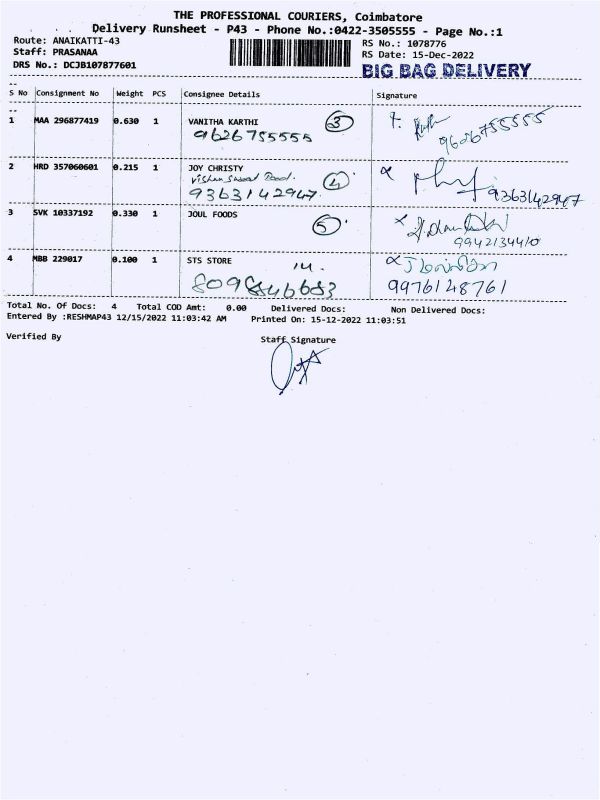 THE PROFESSIONAL COURIERS, Coimbatore
Delivery Runsheet - P43 - Phone No.:0422-3505555 - Page No.:1
Route: ANAIKATTI-43
Staff: PRASANAA
DRS No.: DCJB107877601
RS No.: 1078776
RS Date: 15-Dec-2022
BIG BAG DELIVERY
S No Consignment No Weight PCS Consignee Details Signature
1 MAA 296877419 0.630 1 VANITHA KARTHI
9626755555 3 9626755555
2 HRD 357060601 0.215 1 JOY CHRISTY
9363142947 4 9363142947
3 SVK 10337192 0.330 1 JOUL FOODS
5 9942134410
4 MBB 229017 0.100 1 STS STORE
14.
9976148761
Total No. Of Docs: 4 Total COD Amt: 0.00 Delivered Docs: Non Delivered Docs:
Entered By :RESHMAP43 12/15/2022 11:03:42 AM Printed On: 15-12-2022 11:03:51
Verified By Staff Signature